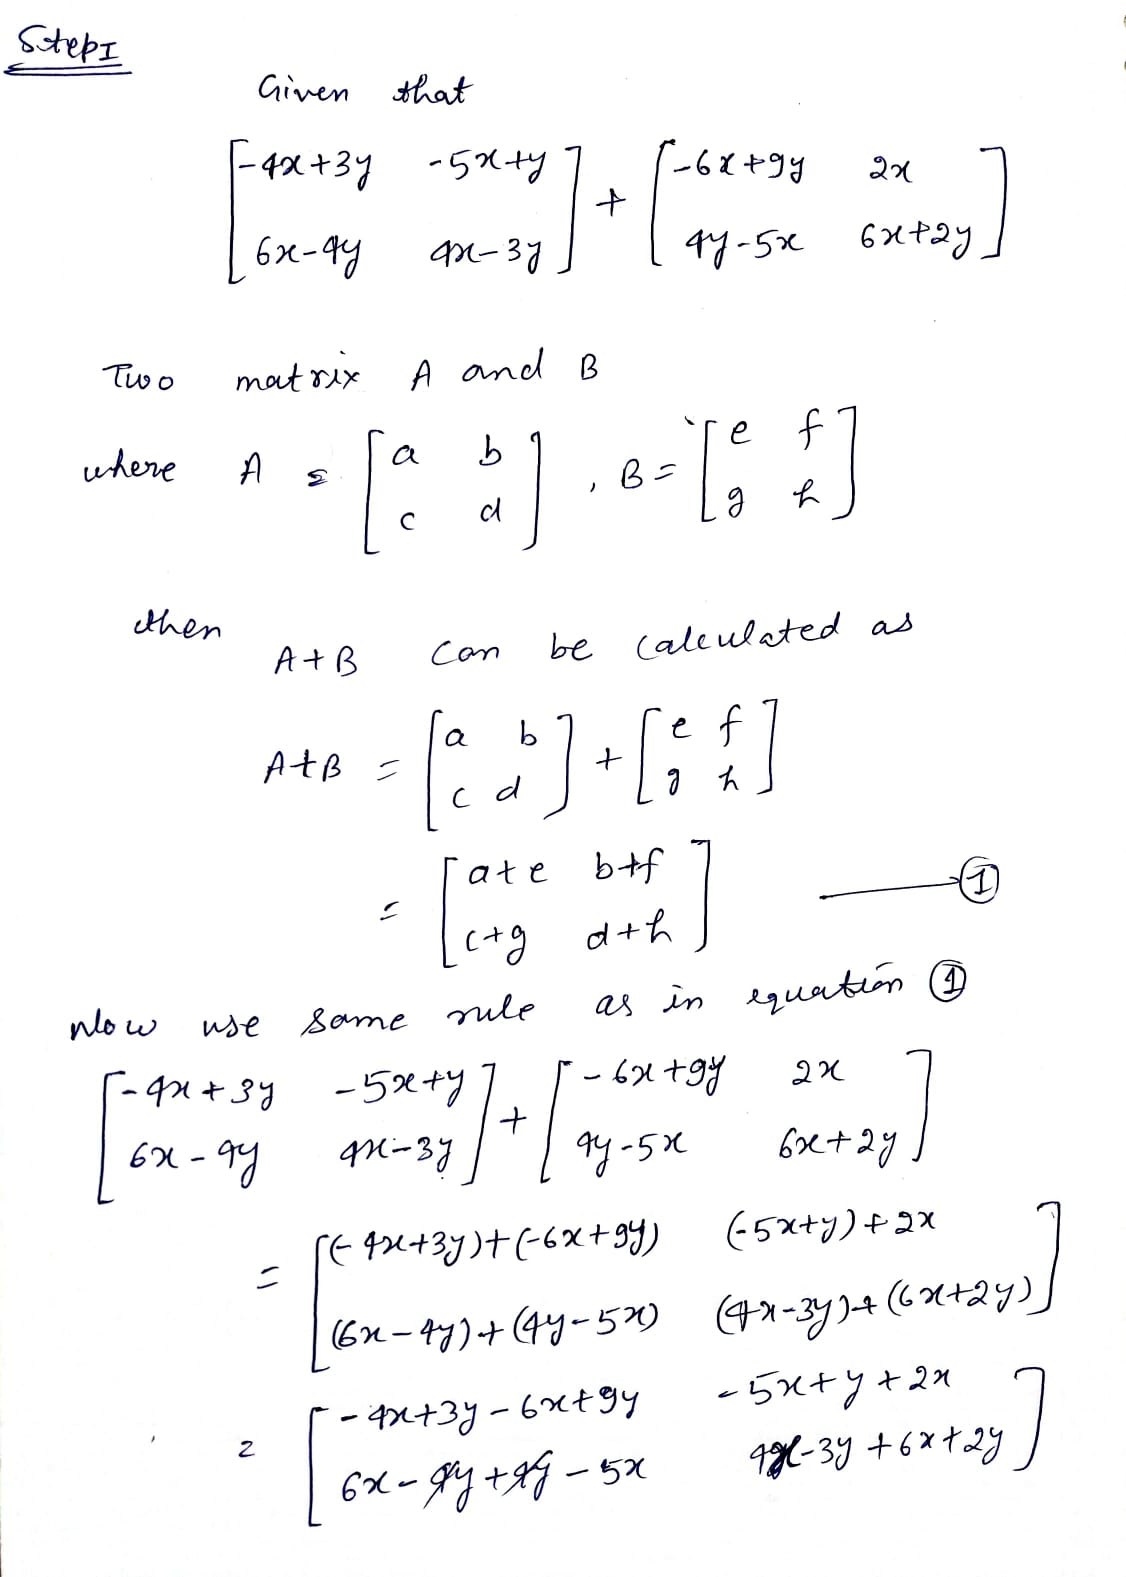 Step I
Given that
[-4x+3y -5x+y] + [-6x+9y 2x]
[6x-4y 4x-3y] [4y-5x 6x+2y]
Two matrix A and B
where A = [a b] , B = [e f]
[c d] [g h]
then A+B can be calculated as
A+B = [a b] + [e f]
[c d] [g h]
= [a+e b+f] —— ①
[c+g d+h]
Now use same rule as in equation ①
[-4x+3y -5x+y] + [-6x+9y 2x]
[6x-4y 4x-3y] [4y-5x 6x+2y]
= [(-4x+3y)+(-6x+9y) (-5x+y)+2x]
[(6x-4y)+(4y-5x) (4x-3y)+(6x+2y)]
= [-4x+3y-6x+9y -5x+y+2x]
[6x-4y+4y-5x 4x-3y+6x+2y]